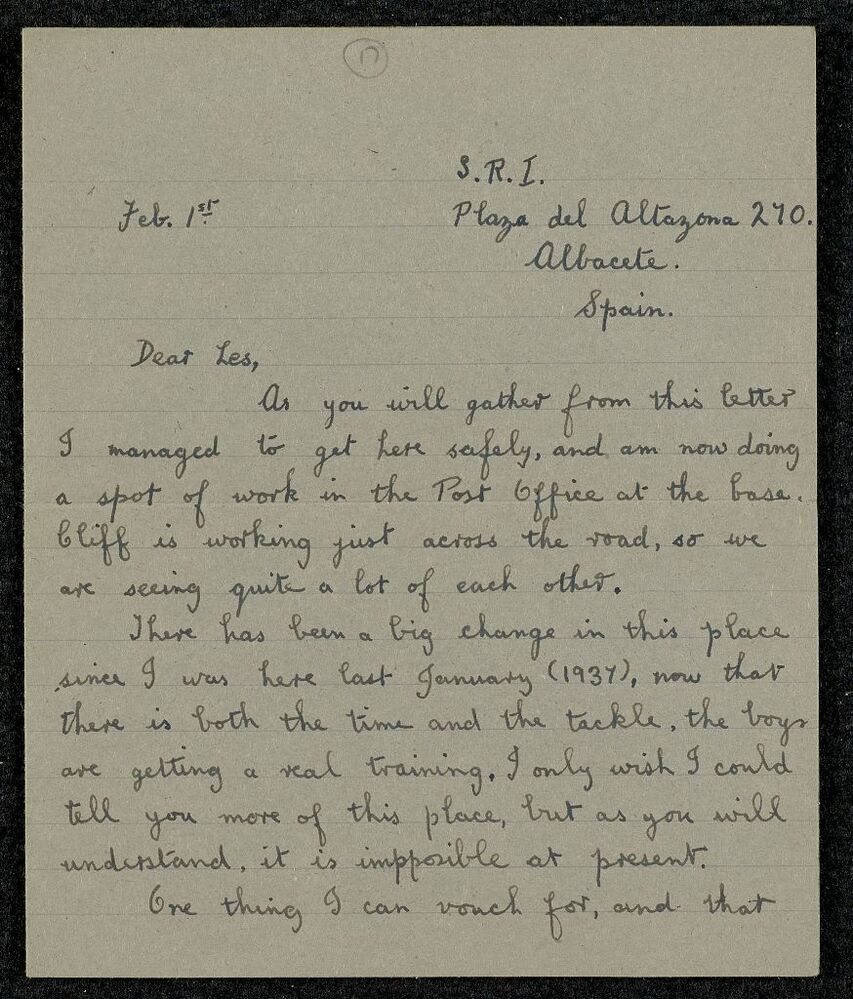 17
S.R.I.
Feb. 1st Plaza del Altazona 270.
Albacete.
Spain.
Dear Les,
As you will gather from this letter
I managed to get here safely, and am now doing
a spot of work in the Post Office at the base.
Cliff is working just across the road, so we
are seeing quite a lot of each other.
There has been a big change in this place
since I was here last January (1937), now that
there is both the time and the tackle, the boys
are getting a real training. I only wish I could
tell you more of this place, but as you will
understand, it is impposible at present.
One thing I can vouch for, and that